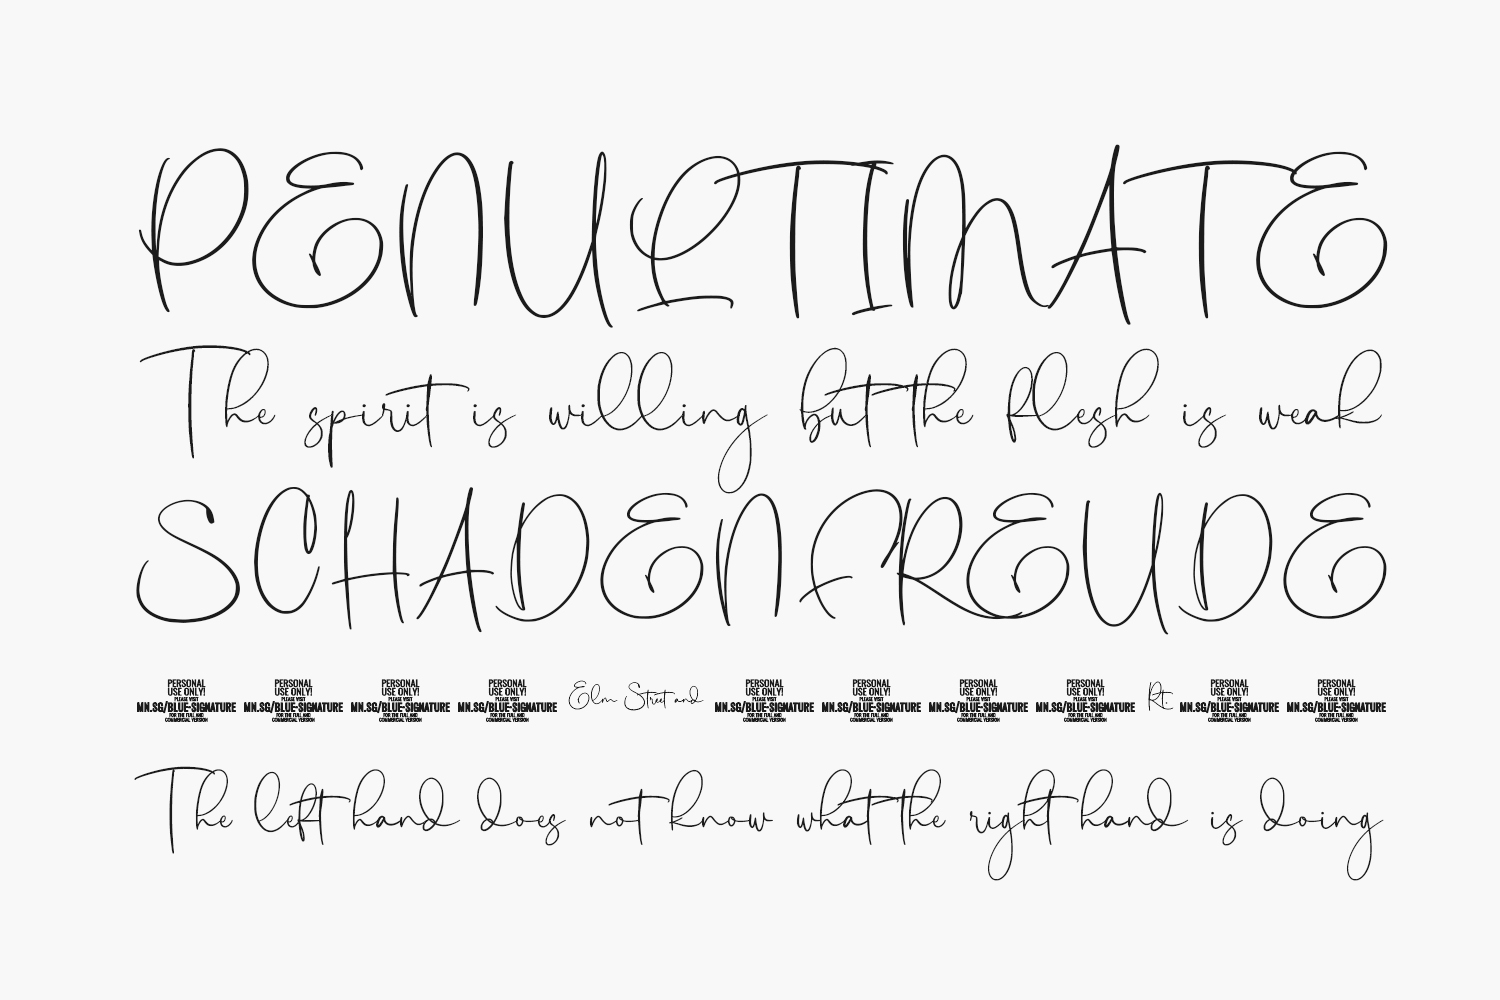 PENULTIMATE
The spirit is willing but the flesh is weak
SCHADENFREUDE
PERSONAL USE ONLY! PLEASE VISIT MN.SG/BLUE-SIGNATURE FOR THE FULL AND COMMERCIAL VERSION PERSONAL USE ONLY! PLEASE VISIT MN.SG/BLUE-SIGNATURE FOR THE FULL AND COMMERCIAL VERSION PERSONAL USE ONLY! PLEASE VISIT MN.SG/BLUE-SIGNATURE FOR THE FULL AND COMMERCIAL VERSION PERSONAL USE ONLY! PLEASE VISIT MN.SG/BLUE-SIGNATURE FOR THE FULL AND COMMERCIAL VERSION Elm Street and PERSONAL USE ONLY! PLEASE VISIT MN.SG/BLUE-SIGNATURE FOR THE FULL AND COMMERCIAL VERSION PERSONAL USE ONLY! PLEASE VISIT MN.SG/BLUE-SIGNATURE FOR THE FULL AND COMMERCIAL VERSION PERSONAL USE ONLY! PLEASE VISIT MN.SG/BLUE-SIGNATURE FOR THE FULL AND COMMERCIAL VERSION PERSONAL USE ONLY! PLEASE VISIT MN.SG/BLUE-SIGNATURE FOR THE FULL AND COMMERCIAL VERSION Rt. PERSONAL USE ONLY! PLEASE VISIT MN.SG/BLUE-SIGNATURE FOR THE FULL AND COMMERCIAL VERSION PERSONAL USE ONLY! PLEASE VISIT MN.SG/BLUE-SIGNATURE FOR THE FULL AND COMMERCIAL VERSION
The left hand does not know what the right hand is doing